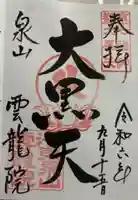 奉拝
令和六年
九月十五日
大黒天
泉山
雲龍院